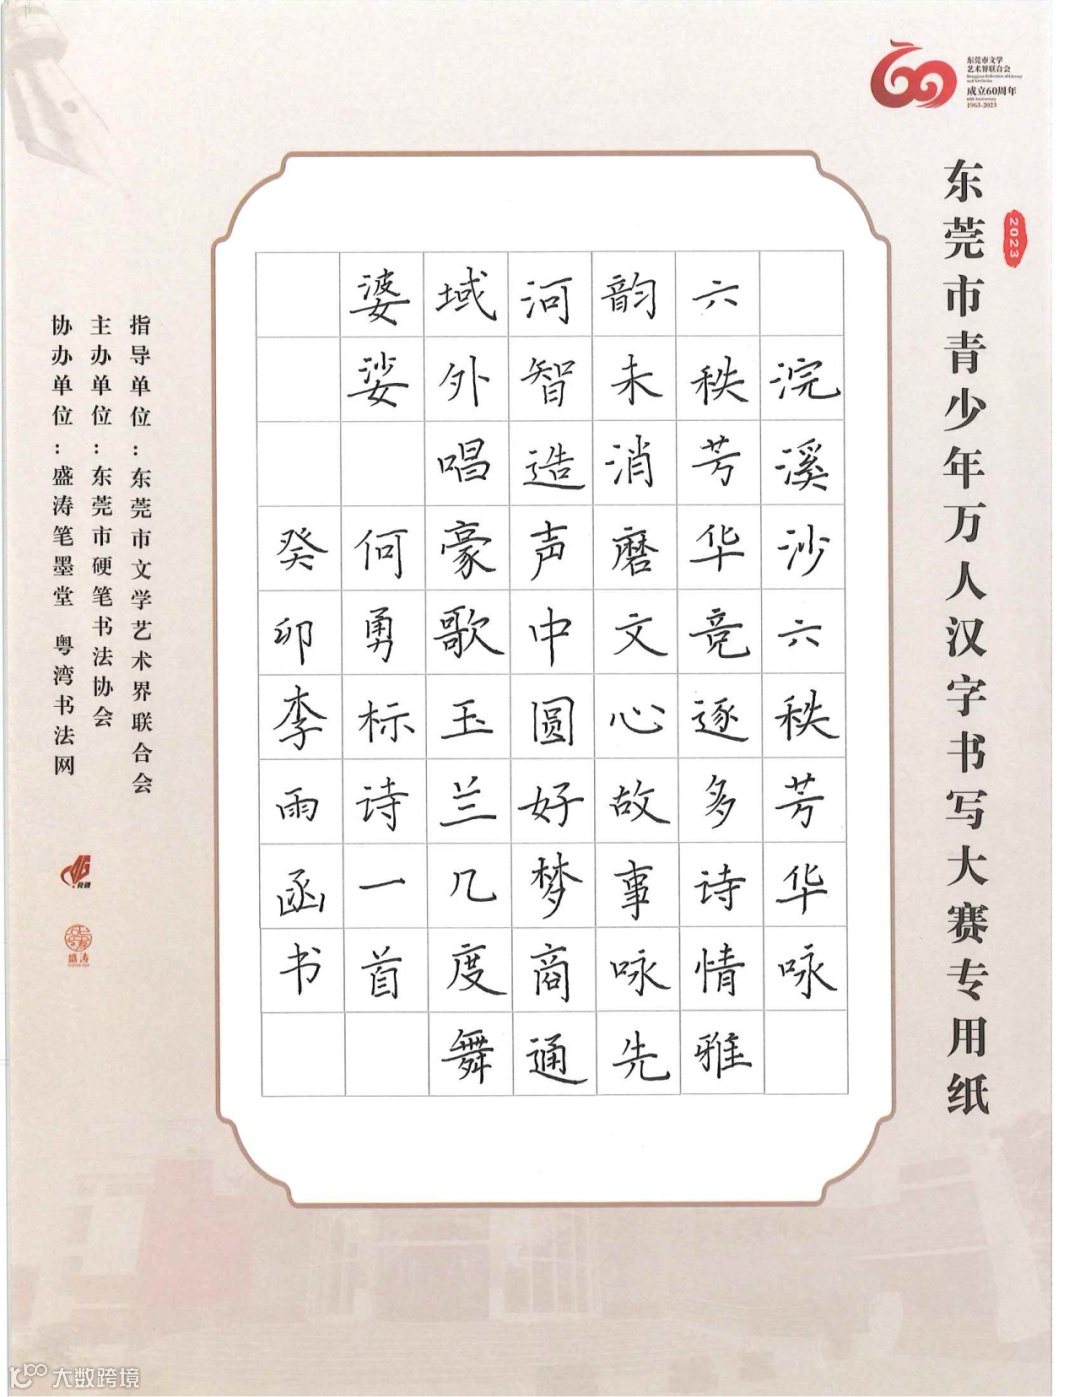 东莞市文学
艺术界联合会
成立60周年
1963-2023
2023
东莞市青少年万人汉字书写大赛专用纸
浣溪沙六秩芳华咏
六秩芳华竞逐多诗情雅
韵未消磨文心故事咏先
河智造声中圆好梦商通
域外唱豪歌玉兰几度舞
婆娑 何勇标诗一首
癸卯李雨函书
指导单位：东莞市文学艺术界联合会
主办单位：东莞市硬笔书法协会
协办单位：盛涛笔墨堂 粤湾书法网
盛涛
大数跨境